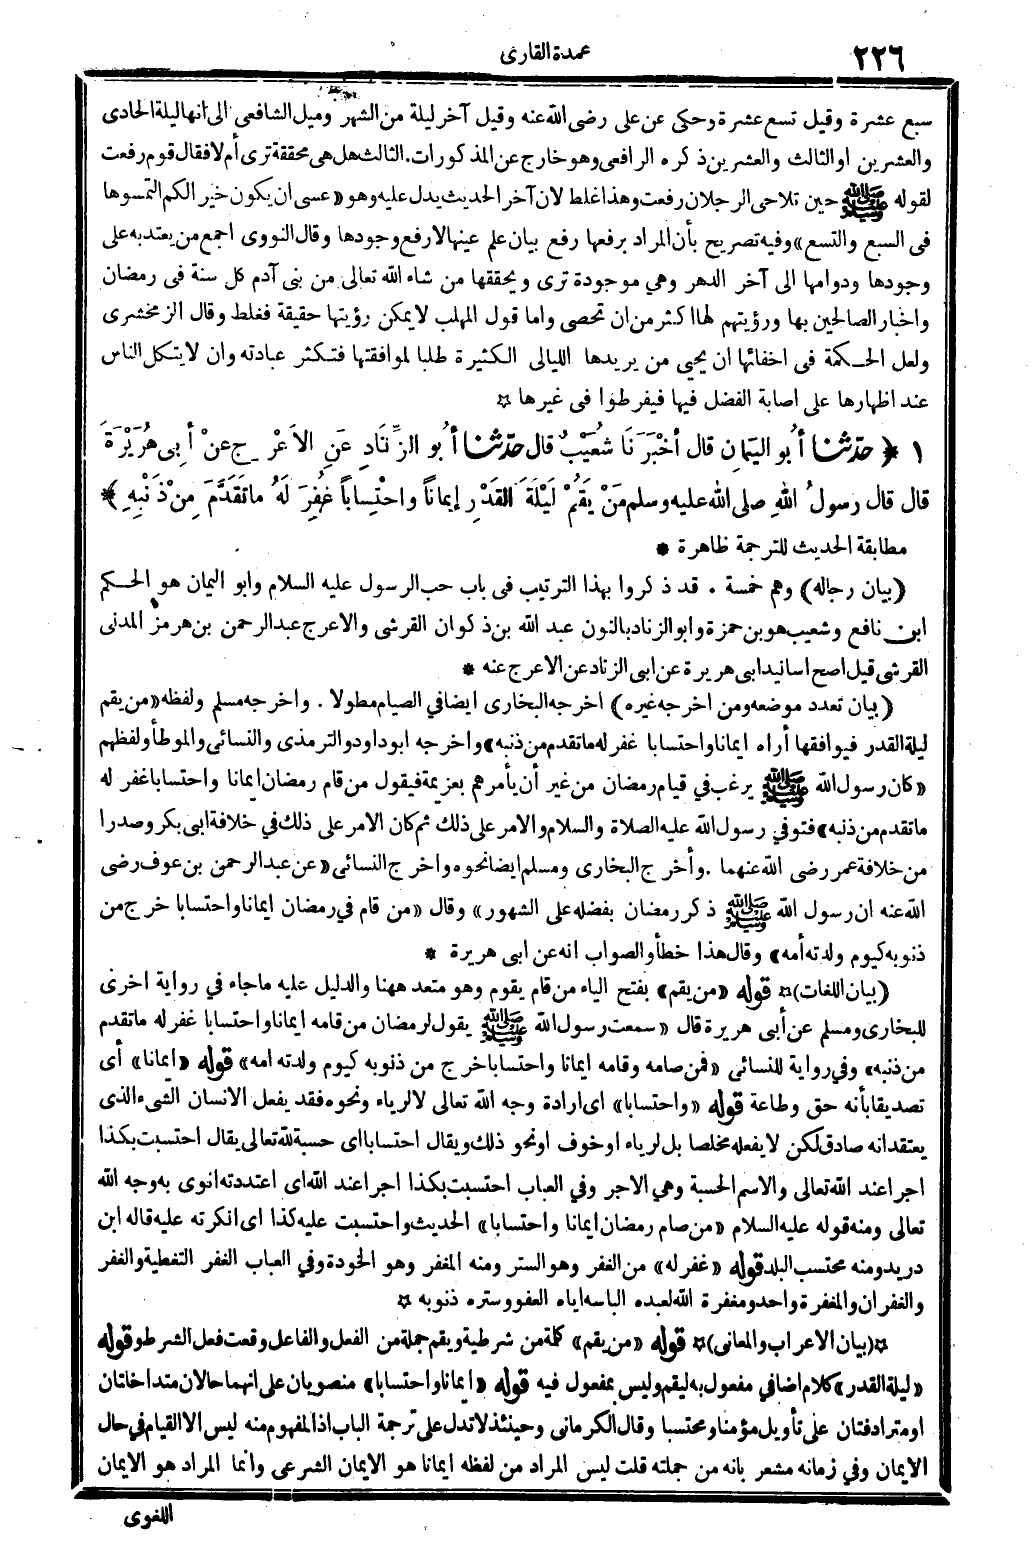 ٢٢٦
عمدة القارى
سبع عشرة وقيل تسع عشرة وحكى عن على رضى الله عنه وقيل آخر ليلة من الشهر وميل الشافعى الى انها ليلة الحادى
والعشرين او الثالث والعشرين ذكره الرافعى وهو خارج عن المذكورات. الثالث هل هى محققة ترى أم لا فقال قوم رفعت
لقوله ﷺ حين تلاحى الرجلان رفعت وهذا غلط لان آخر الحديث يدل عليه وهو «عسى ان يكون خير الكم التمسوها
فى السبع والتسع» وفيه تصريح بأن المراد برفعها رفع بيان علم عينها لا رفع وجودها وقال النووى اجمع من يعتد به على
وجودها ودوامها الى آخر الدهر وهي موجودة ترى ويحققها من شاء الله تعالى من بنى آدم كل سنة فى رمضان
واخبار الصالحين بها ورؤيتهم لها اكثر من ان تحصى واما قول المهلب لا يمكن رؤيتها حقيقة فغلط وقال الزمخشرى
ولعل الحكمة فى اخفائها ان يحيى من يريدها الليالى الكثيرة طلبا لموافقتها فتكثر عبادته وان لا يتكل الناس
عند اظهارها على اصابة الفضل فيها فيفرطوا فى غيرها ✩
١ ﴿ حدثنا أبو اليَمان قال أخْبَرَنَا شُعَيْبٌ قال حدثنا أبو الزِّنَادِ عَنِ الاَعْرَجِ عنْ أبِى هُرَيْرَةَ
قال قال رسولُ اللهِ صلى الله عليه وسلم مَنْ يَقُمْ لَيْلَةَ القَدْرِ إيماناً واحْتِساباً غُفِرَ لَهُ ما تَقَدَّمَ مِنْ ذَنْبِهِ * ﴾
مطابقة الحديث للترجمة ظاهرة *
(بيان رجاله) وهم خمسة . قد ذكروا بهذا الترتيب فى باب حب الرسول عليه السلام وابو اليمان هو الحكم
ابن نافع وشعيب هو بن حمزة وابو الزناد بالنون عبد الله بن ذكوان القرشى والاعرج عبد الرحمن بن هرمز المدنى
القرشى قيل اصح اسانيد ابى هريرة عن ابى الزناد عن الاعرج عنه *
(بيان تعدد موضعه ومن اخرجه غيره) اخرجه البخارى ايضا في الصيام مطولا . واخرجه مسلم ولفظه «من يقم
ليلة القدر فيوافقها أراه ايمانا واحتسابا غفر له ما تقدم من ذنبه» واخرجه ابو داود والترمذى والنسائى والموطأ ولفظهم
«كان رسول الله ﷺ يرغب في قيام رمضان من غير أن يأمرهم بعزيمة فيقول من قام رمضان ايمانا واحتسابا غفر له
ما تقدم من ذنبه» فتوفي رسول الله عليه الصلاة والسلام والامر على ذلك ثم كان الامر على ذلك في خلافة ابى بكر وصدرا
من خلافة عمر رضى الله عنهما . وأخرج البخارى ومسلم ايضا نحوه واخرج النسائى «عن عبد الرحمن بن عوف رضى
الله عنه ان رسول الله ﷺ ذكر رمضان بفضله على الشهور» وقال «من قام في رمضان ايمانا واحتسابا خرج من
ذنوبه كيوم ولدته أمه» وقال هذا خطأ والصواب انه عن ابى هريرة *
(بيان اللغات) ✩ قوله «من يقم» بفتح الياء من قام يقوم وهو متعد ههنا والدليل عليه ما جاء في رواية اخرى
للبخارى ومسلم عن أبى هريرة قال «سمعت رسول الله ﷺ يقول لرمضان من قامه ايمانا واحتسابا غفر له ما تقدم
من ذنبه» وفي رواية للنسائى «فمن صامه وقامه ايمانا واحتسابا خرج من ذنوبه كيوم ولدته امه» قوله «ايمانا» أى
تصديقا بأنه حق وطاعة قوله «واحتسابا» اى ارادة وجه الله تعالى لا لرياء ونحوه فقد يفعل الانسان الشىء الذى
يعتقد انه صادق لكن لا يفعله مخلصا بل لرياء او خوف او نحو ذلك ويقال احتسابا اى حسبة لله تعالى يقال احتسبت بكذا
اجرا عند الله تعالى والاسم الحسبة وهي الاجر وفي العباب احتسبت بكذا اجرا عند الله اى اعتددته انوى به وجه الله
تعالى ومنه قوله عليه السلام «من صام رمضان ايمانا واحتسابا» الحديث واحتسبت عليه كذا اى انكرته عليه قاله ابن
دريد ومنه محتسب البلد قوله «غفر له» من الغفر وهو الستر ومنه المغفر وهو الخودة وفي العباب الغفر التغطية والغفر
والغفران والمغفرة واحد ومغفرة الله لعبده الباسه اياه العفو وستره ذنوبه ✩
✩(بيان الاعراب والمعانى)✩ قوله «من يقم» كلمة من شرطية ويقم جملة من الفعل والفاعل وقعت فعل الشرط وقوله
«ليلة القدر» كلام اضافي مفعول به ليقم وليس بمفعول فيه قوله «ايمانا واحتسابا» منصوبان على انهما حالان متداخلتان
او مترادفتان على تأويل مؤمنا ومحتسبا وقال الكرمانى وحينئذ لا تدل على ترجمة الباب اذ المفهوم منه ليس الا القيام في حال
الايمان وفي زمانه مشعر بانه من جملته قلت ليس المراد من لفظه ايمانا هو الايمان الشرعى وانما المراد هو الايمان
اللغوى